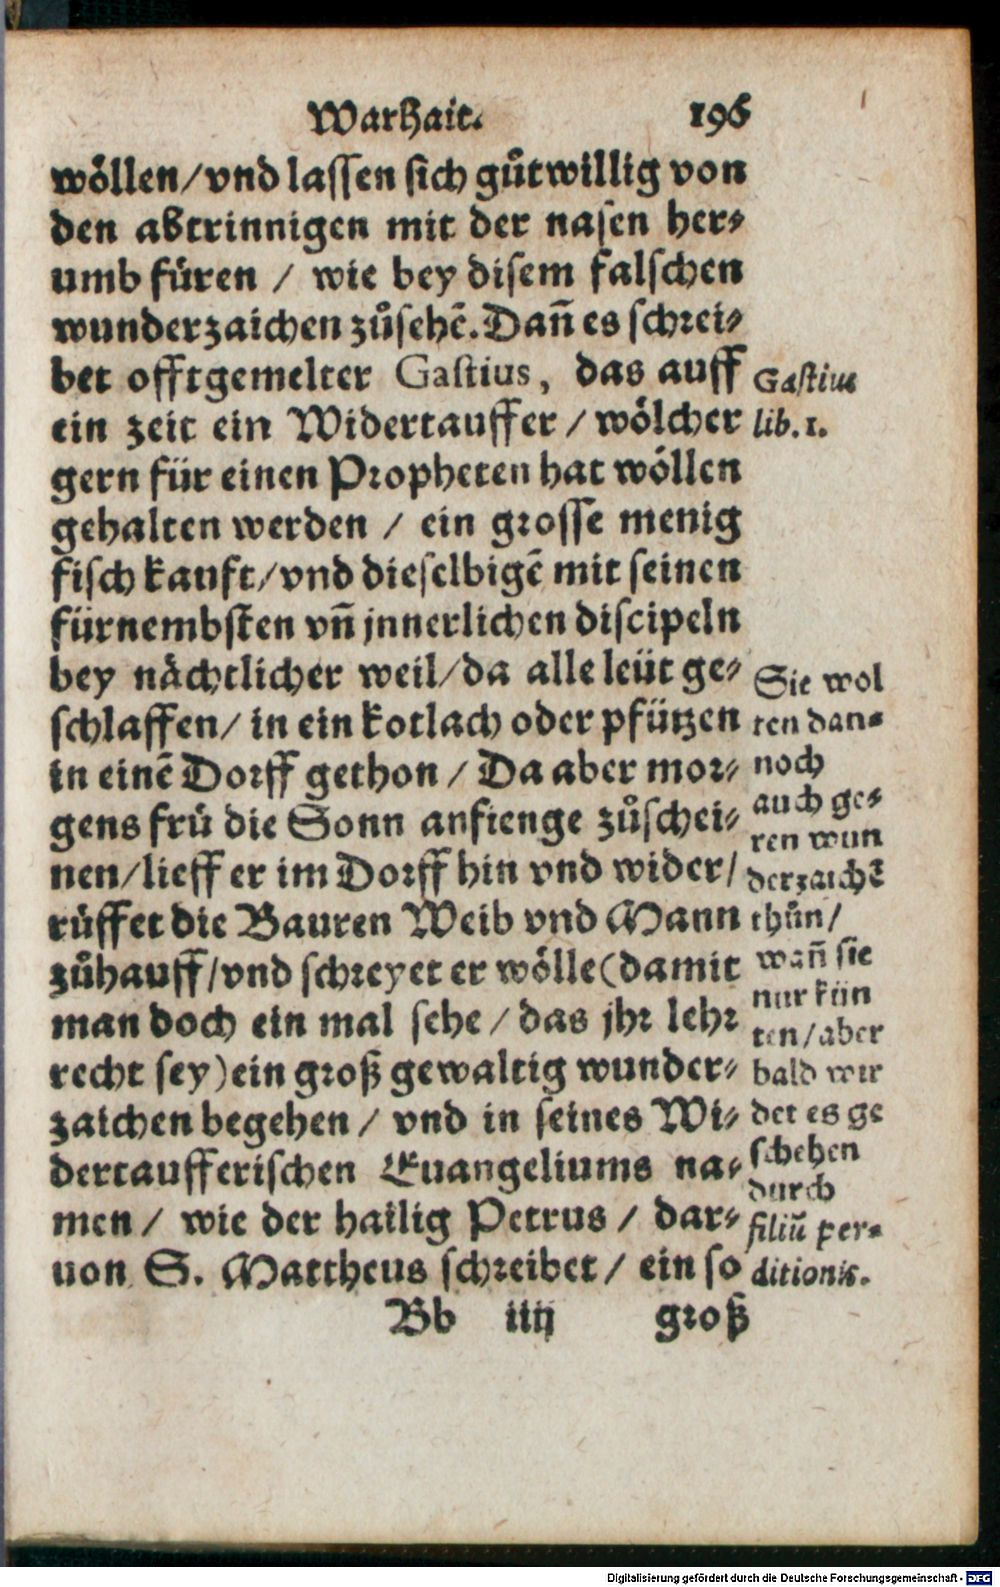 Warhait. 196
wöllen/vnd lassen sich gůtwillig von
den abtrinnigen mit der nasen her⸗
umb füren / wie bey disem falschen
wunderzaichen zůsehē. Dañ es schrei⸗
bet offtgemelter Gastius, das auff
ein zeit ein Widertauffer / wölcher
gern für einen Propheten hat wöllen
gehalten werden / ein grosse menig
fisch kauft/vnd dieselbigē mit seinen
fürnembsten vñ jnnerlichen discipeln
bey nächtlicher weil/da alle leüt ge⸗
schlaffen/ in ein kotlach oder pfützen
in einē Dorff gethon / Da aber mor⸗
gens frü die Sonn anfienge zůschei⸗
nen/lieff er im Dorff hin vnd wider/
rüffet die Bauren Weib vnd Mann
zůhauff/vnd schreyet er wölle (damit
man doch ein mal sehe / das jhr lehr
recht sey) ein groß gewaltig wunder⸗
zaichen begehen / vnd in seines Wi⸗
dertaufferischen Euangeliums na⸗
men / wie der hailig Petrus / dar⸗
uon S. Mattheus schreibet / ein so
Bb iiij groß
Gastius
lib. 1.
Sie wol
ten dan⸗
noch
auch ge⸗
ren wun
derzaichē
thůn/
wañ sie
nur kün
ten/aber
bald wir
det es ge
schehen
durch
filiū per⸗
ditionis.
Digitalisierung gefördert durch die Deutsche Forschungsgemeinschaft - DFG